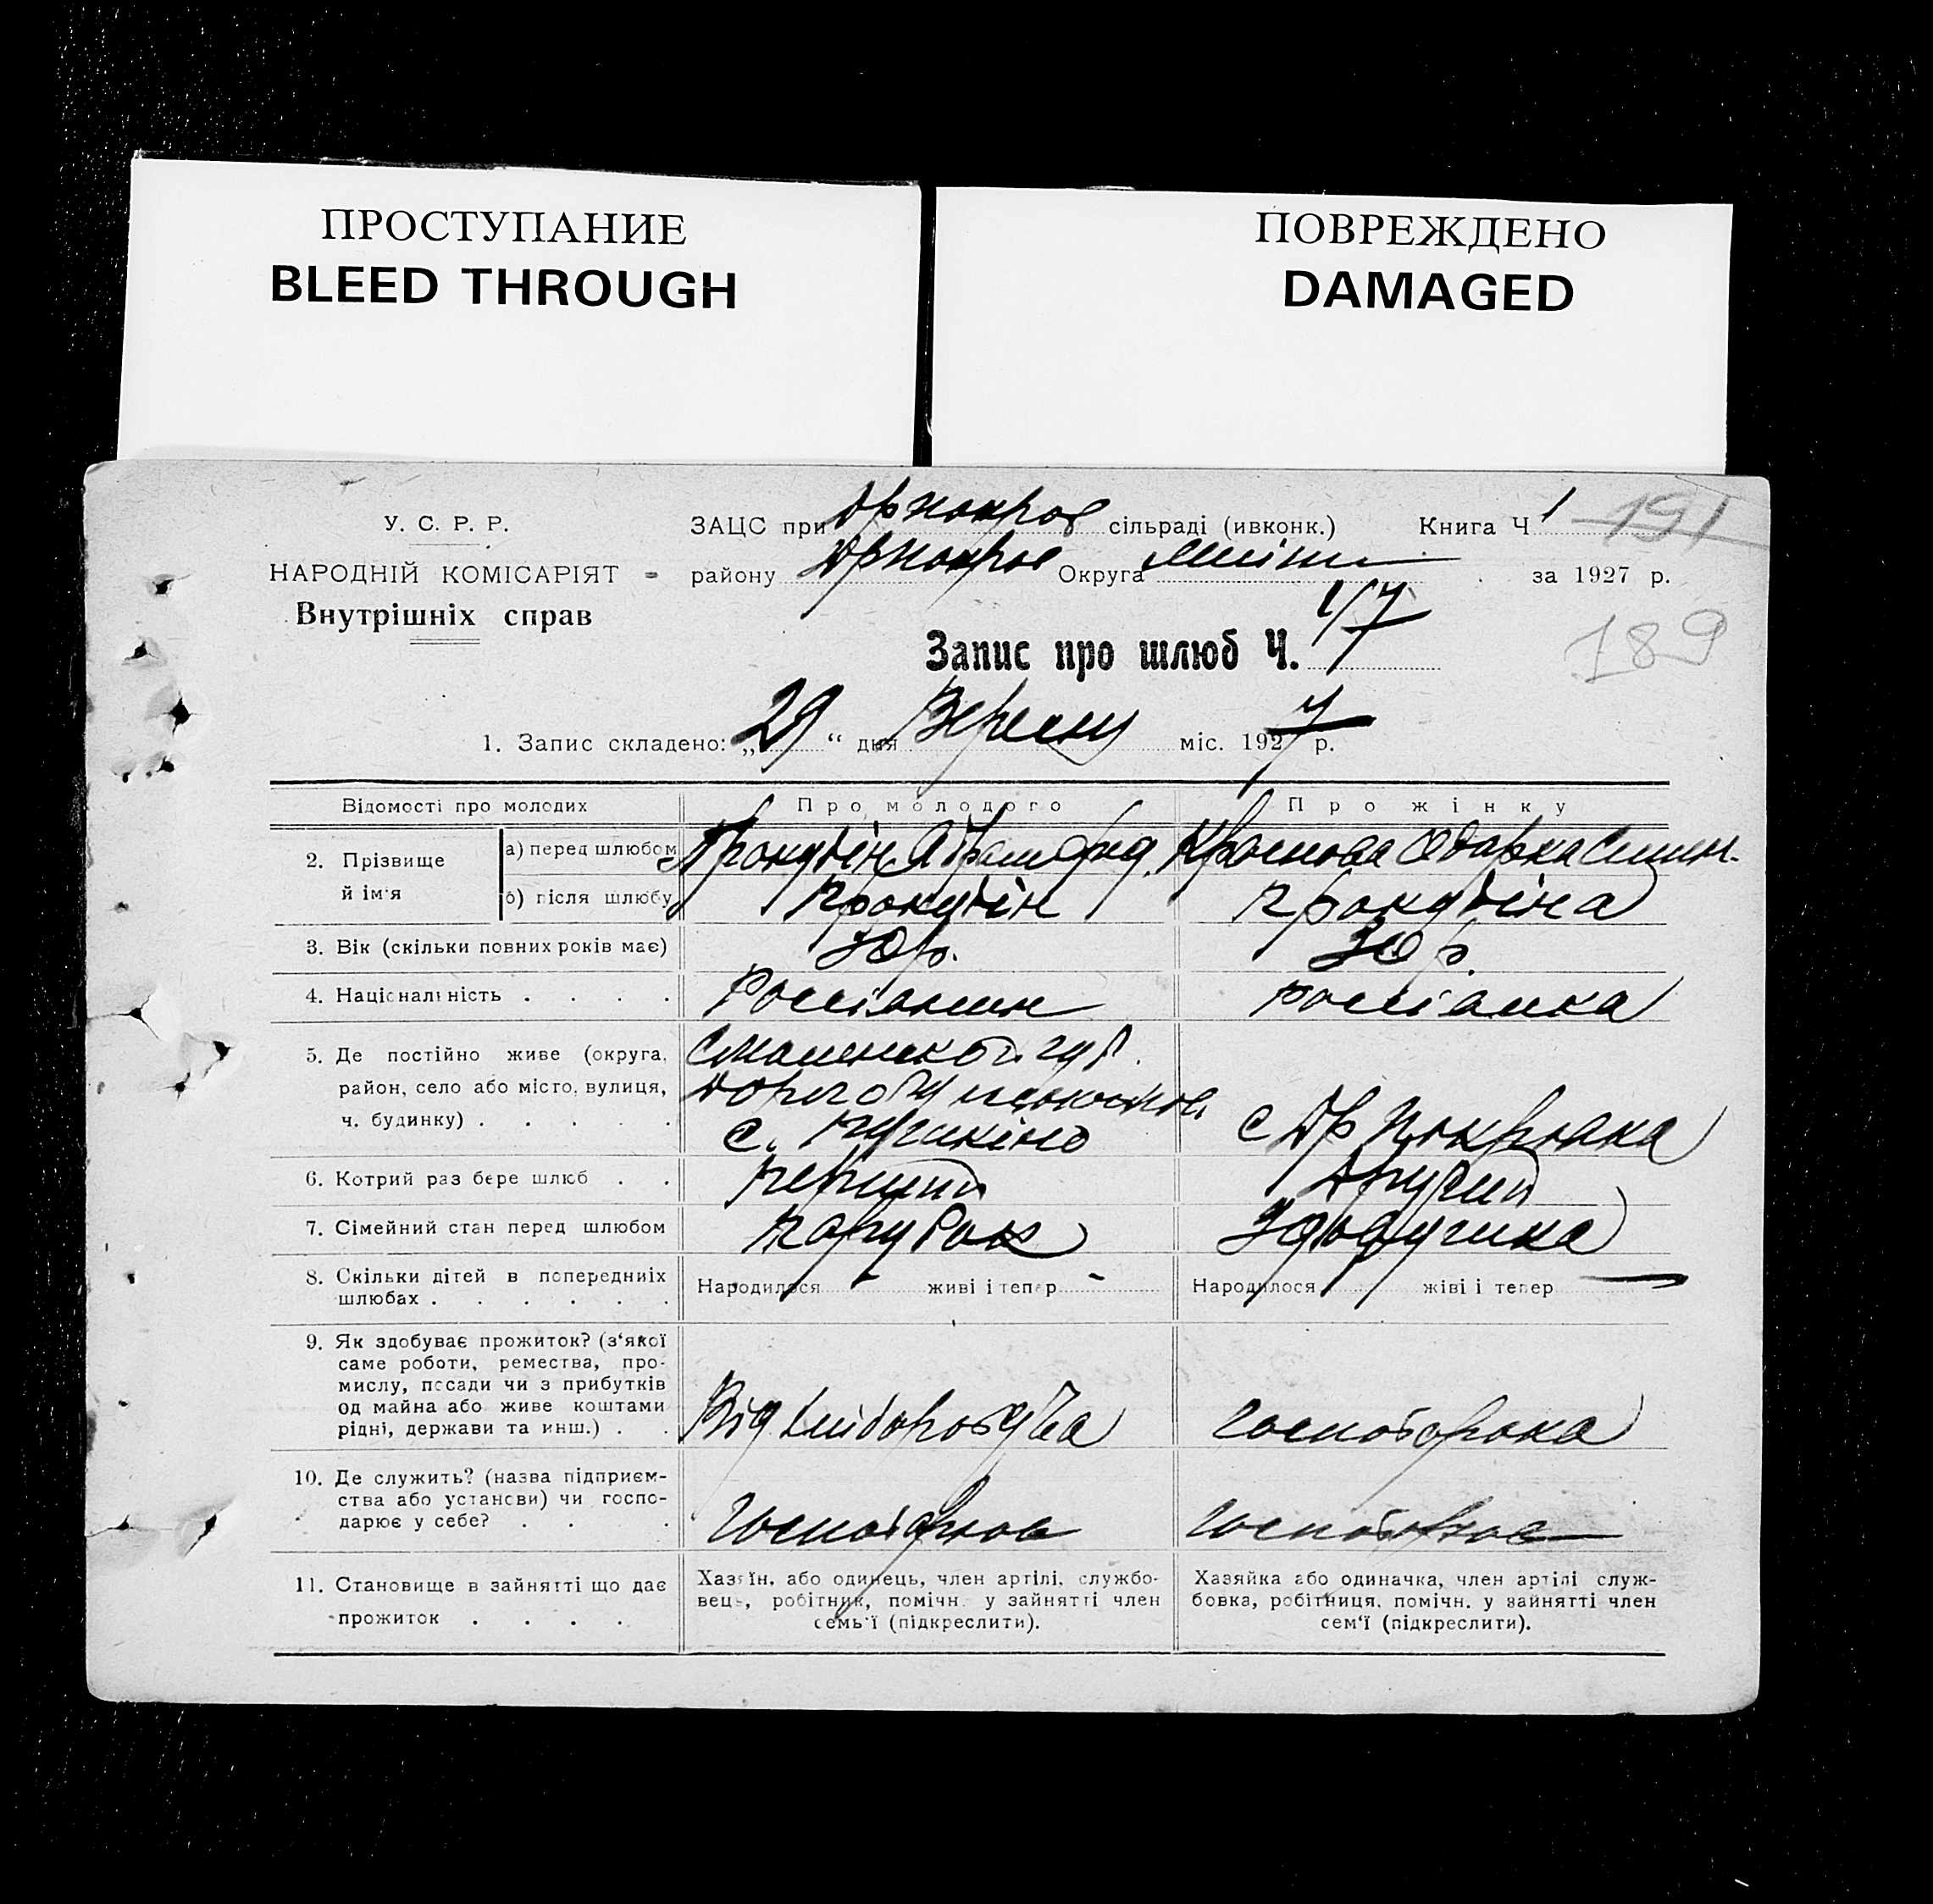 ПРОСТУПАНИЕ
BLEED THROUGH
ПОВРЕЖДЕНО
DAMAGED
У. С. Р. Р.
НАРОДНІЙ КОМІСАРІЯТ
Внутрішніх справ
ЗАЦС при сільраді (ивконк.) Книга Ч 1 191
району Округа за 1927 р.
189
Запис про шлюб Ч. 1/7
1. Запис складено: „29“ дня Вересня міс. 1927 р.
Відомості про молодих Про молодого Про жінку
2. Прізвище й ім'я
а) перед шлюбом Прокудін Краснова Одарка
б) після шлюбу Прокудін Прокудіна
3. Вік (скільки повних років має) 30 р. 30 р.
4. Національність . . . . Россіянин россіянка
5. Де постійно живе (округа, район, село або місто, вулиця, ч. будинку) . . . . .
Смоленской губ.
с. с Др Покровка
6. Котрий раз бере шлюб . . перший другий
7. Сімейний стан перед шлюбом парубок
8. Скільки дітей в попередниіх шлюбах . . . . . .
Народилося - живі і тепер - Народилося жіві і тепер —
9. Як здобуває прожиток? (з'якої
саме роботи, ремества, про-
мислу, посади чи з прибутків
од майна або живе коштами
рідні, держави та инш.) . .
Від хліборобства
10. Де служить? (назва підприєм-
ства або установи) чи госпо-
дарює у себе? . . .
11. Становище в зайнятті що дає
прожиток . . . .
Хазяїн, або одинець, член артілі, службо-
вець, робітник, помічн. у зайнятті член
семь'ї (підкреслити).
Хазяйка або одиначка, член артілі служ-
бовка, робітниця, помічн. у зайнятті член
сем'ї (підкреслити).